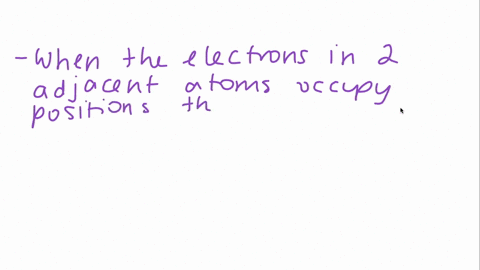 - When the electrons in 2
adjacent atoms occupy
positions th